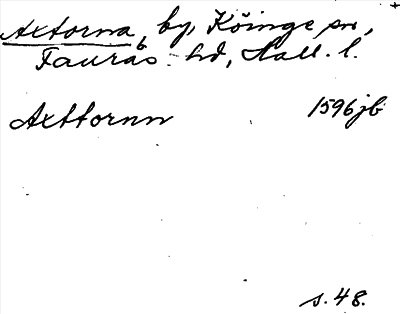 Axtorna, by, Köinge sn,
Faurås hd, Hall. l.
Axttornn 1596 jb
s. 48.